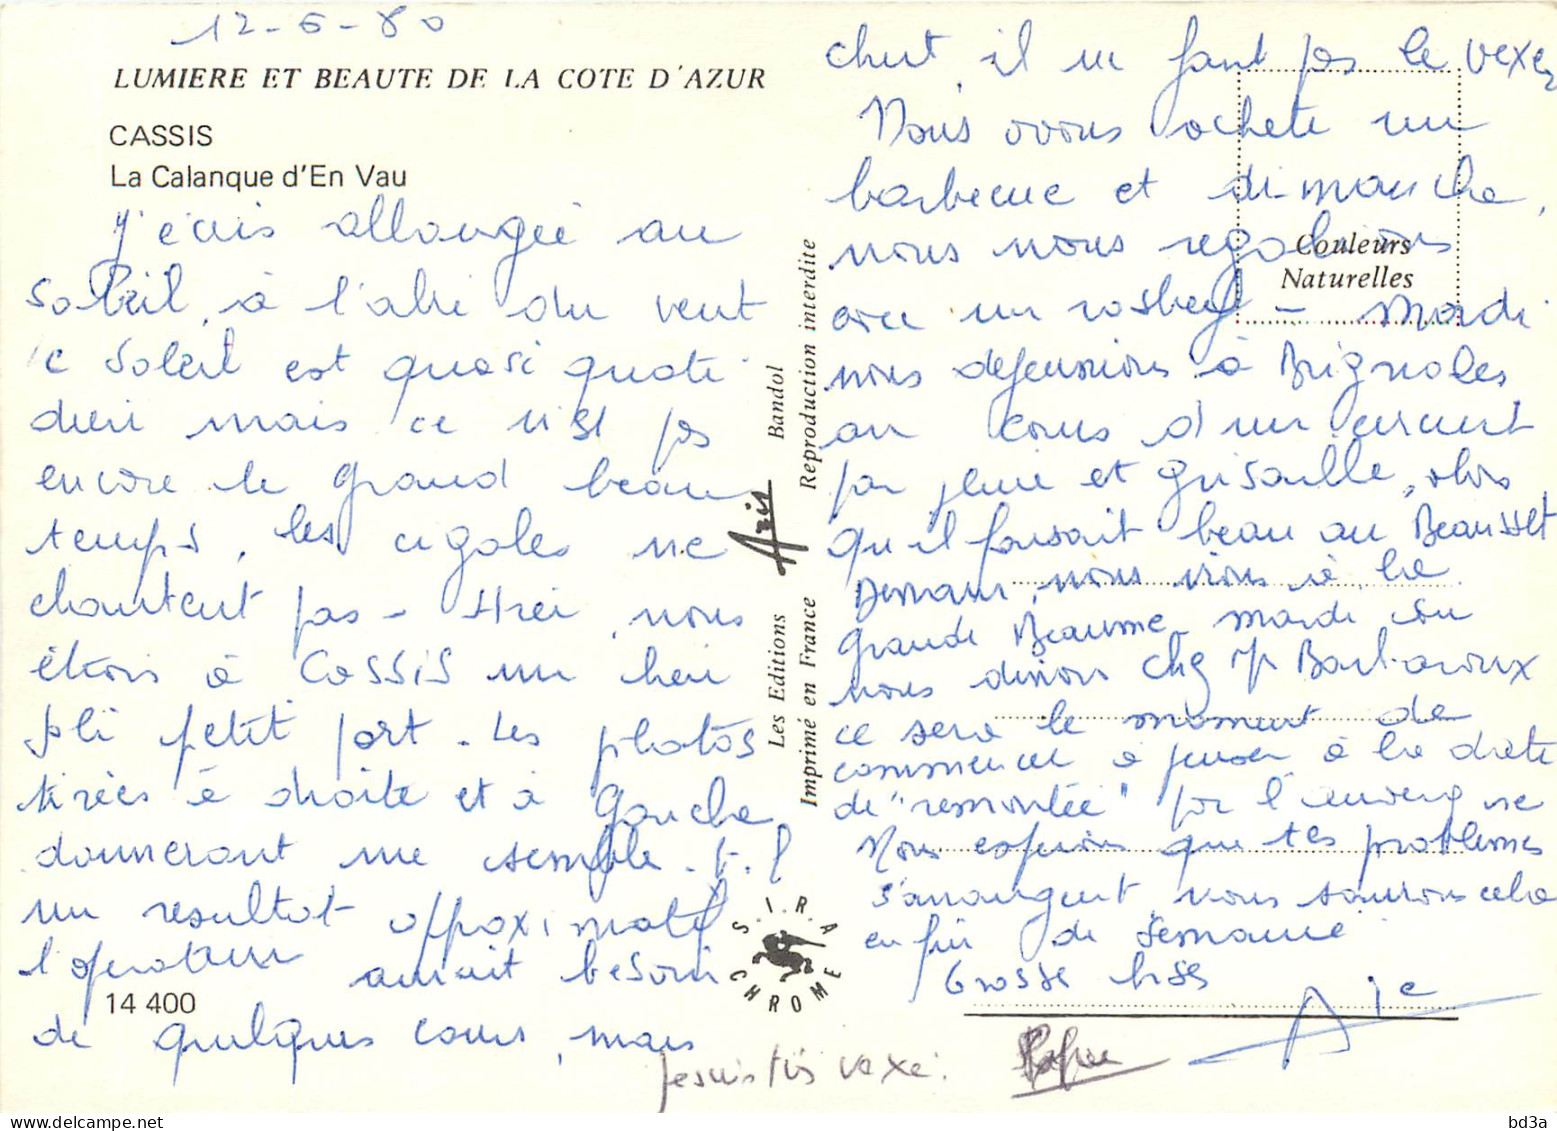 12-6-80
LUMIERE ET BEAUTE DE LA COTE D'AZUR
CASSIS
La Calanque d'En Vau
J'écris allongée au
soleil, à l'abri du vent
le soleil est quasi quoti
dien mais ce n'est pas
encore le grand beau
temps, les cigales ne
chantent pas - Hier, nous
étions à CASSIS un bien
joli petit port. Les photos
tirées à droite et à gauche
donneront me semble-t-il
un resultat approximatif
l'operateur aurait besoin
14 400
de quelques cours, mais
chut, il ne faut pas le vexer
Nous avons acheté un
barbecue et dimanche,
nous nous regalions
avec un rosbeef - Mardi
nous dejeunions à Brignoles
au cours d'un circuit
par pluie et grisaille, alors
qu'il faisait beau au Beausset
Demain, nous irons à la
Grande Beaume, mardi
nous dinions chez Barbaroux
ce sera le moment de
commencer à penser à la date
de "remontée"
Nous esperions que tes problèmes
s'arrangent, nous saurons cela
en fin de semaine
Grosse bises
Je suis très vexé.
Couleurs
Naturelles
Les Editions Aris Bandol
Imprimé en France Reproduction interdite
S.I.R.A
CHROME
bd3a